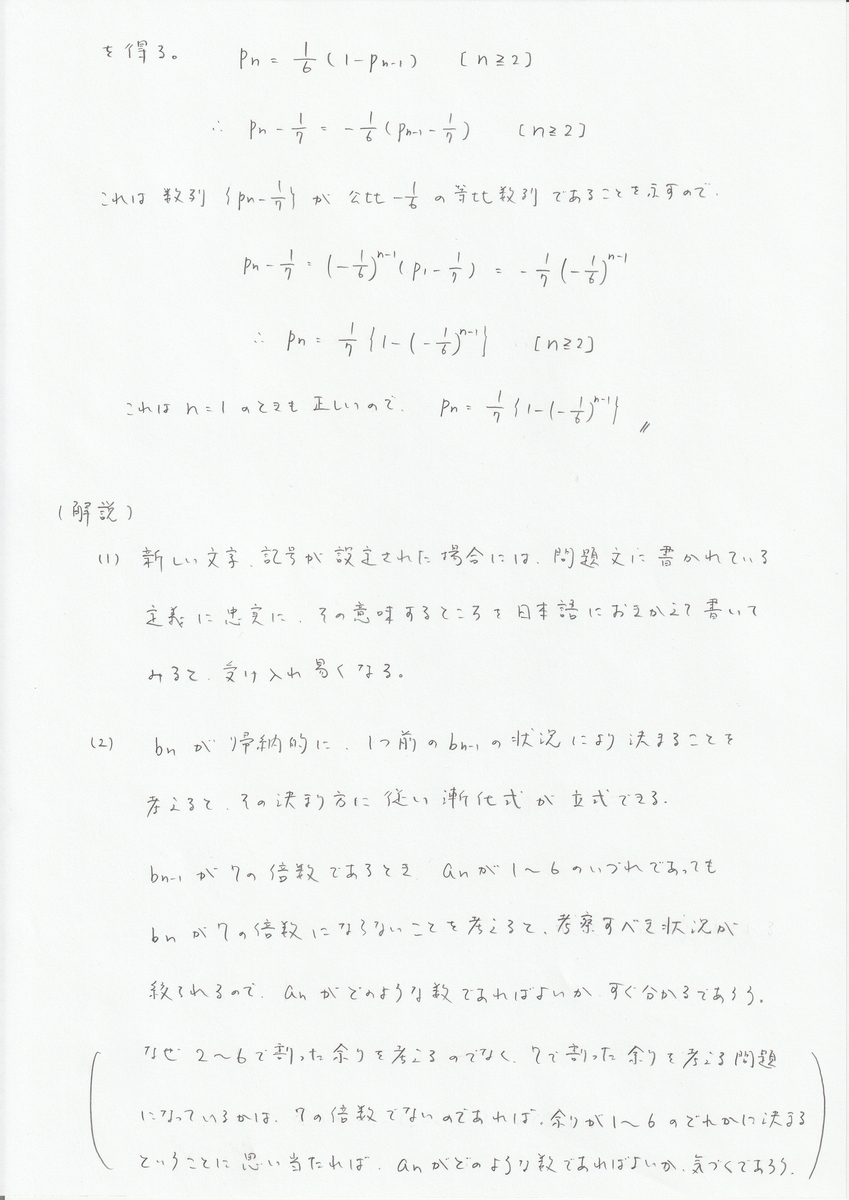 を得る。 pn = 1/6 (1-pn-1) [n≧2]
∴ pn - 1/7 = -1/6 (pn-1 - 1/7) [n≧2]
これは 数列 {pn-1/7} が 公比 -1/6 の等比数列 であることを示すので、
pn - 1/7 = (-1/6)^n-1 (p1 - 1/7) = -1/7 (-1/6)^n-1
∴ pn = 1/7 {1-(-1/6)^n-1} [n≧2]
これは n=1 のときも 正しいので、 pn = 1/7 {1-(-1/6)^n-1} 〃
(解説)
(1) 新しい文字、記号が 設定された場合には、問題文に書かれている
定義に忠実に、その意味するところを日本語におきかえて書いて
みると、受け入れ易くなる。
(2) bn が 帰納的に、1つ前の bn-1 の状況により決まることを
考えると、その決まり方に従い漸化式が立式できる。
bn-1 が 7の倍数であるとき、an が 1〜6 のいづれであっても
bn が 7の倍数にならないことを考えると、考察すべき状況が
絞られるので、an がどのような数であればよいか すぐ分かるであろう。
(なぜ 2〜6で割った余りを考えるのでなく、7で割った余りを考える問題
になっているかは、7の倍数でないのであれば、余りが1〜6のどれかに決まる
ということに思い当たれば、an がどのような数であればよいか、気づくであろう。)